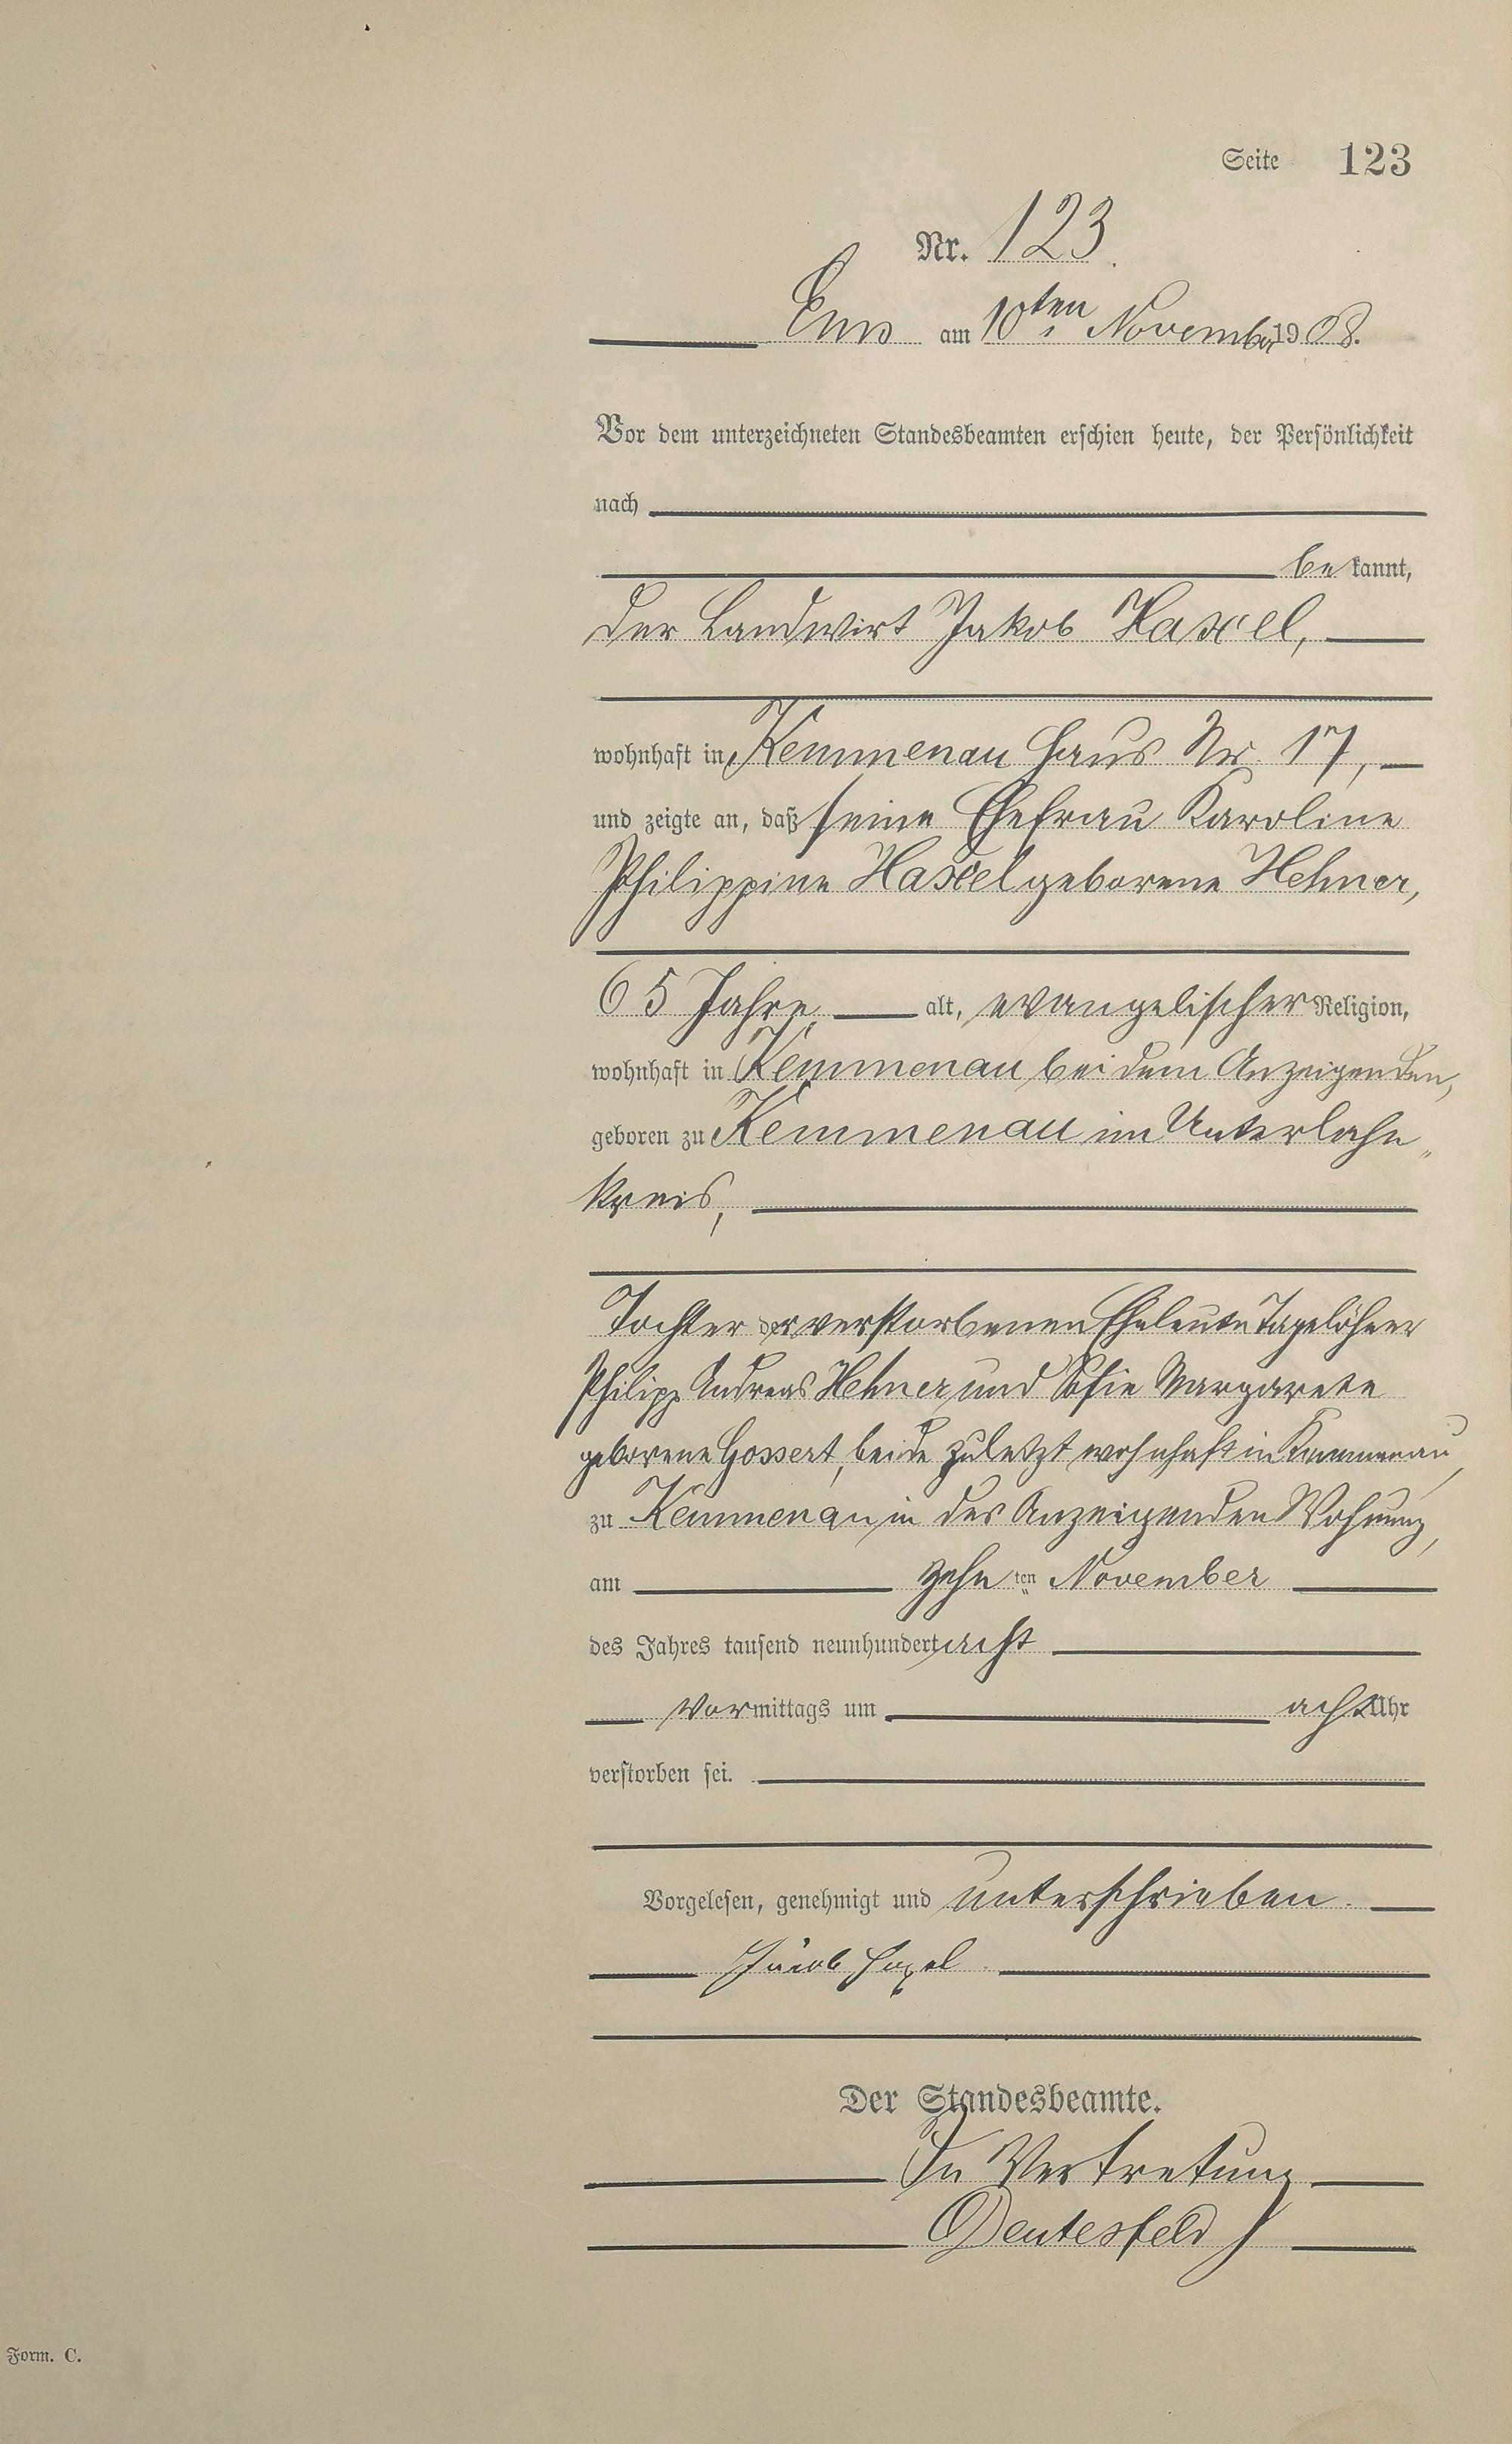 Seite 123
Nr. 123.
Ems am 10ten November 1908.
Vor dem unterzeichneten Standesbeamten erschien heute, der Persönlichkeit
nach
bekannt,
der Landwirt Jakob Haxel,
wohnhaft in Kemmenau Haus Nr. 17,
und zeigte an, daß seine Ehefrau Karoline
Philippine Haxel geborene Hehner,
65 Jahre alt, evangelischer Religion,
wohnhaft in Kemmenau bei dem Anzeigenden,
geboren zu Kemmenau im Unterlahn„
kreis,
Tochter der verstorbenen Eheleute Tagelöhner
Philipp Andreas Hehner und Sofie Margarete
geborene Gossert, beide zuletzt wohnhaft in Kemmenau,
zu Kemmenau in des Anzeigenden Wohnung,
am zehnten November
des Jahres tausend neunhundert acht
Vormittags um acht Uhr
verstorben sei.
Vorgelesen, genehmigt und unterschrieben.
Jacob Haxel.
Der Standesbeamte.
In Vertretung
Deutesfeld
Form. C.